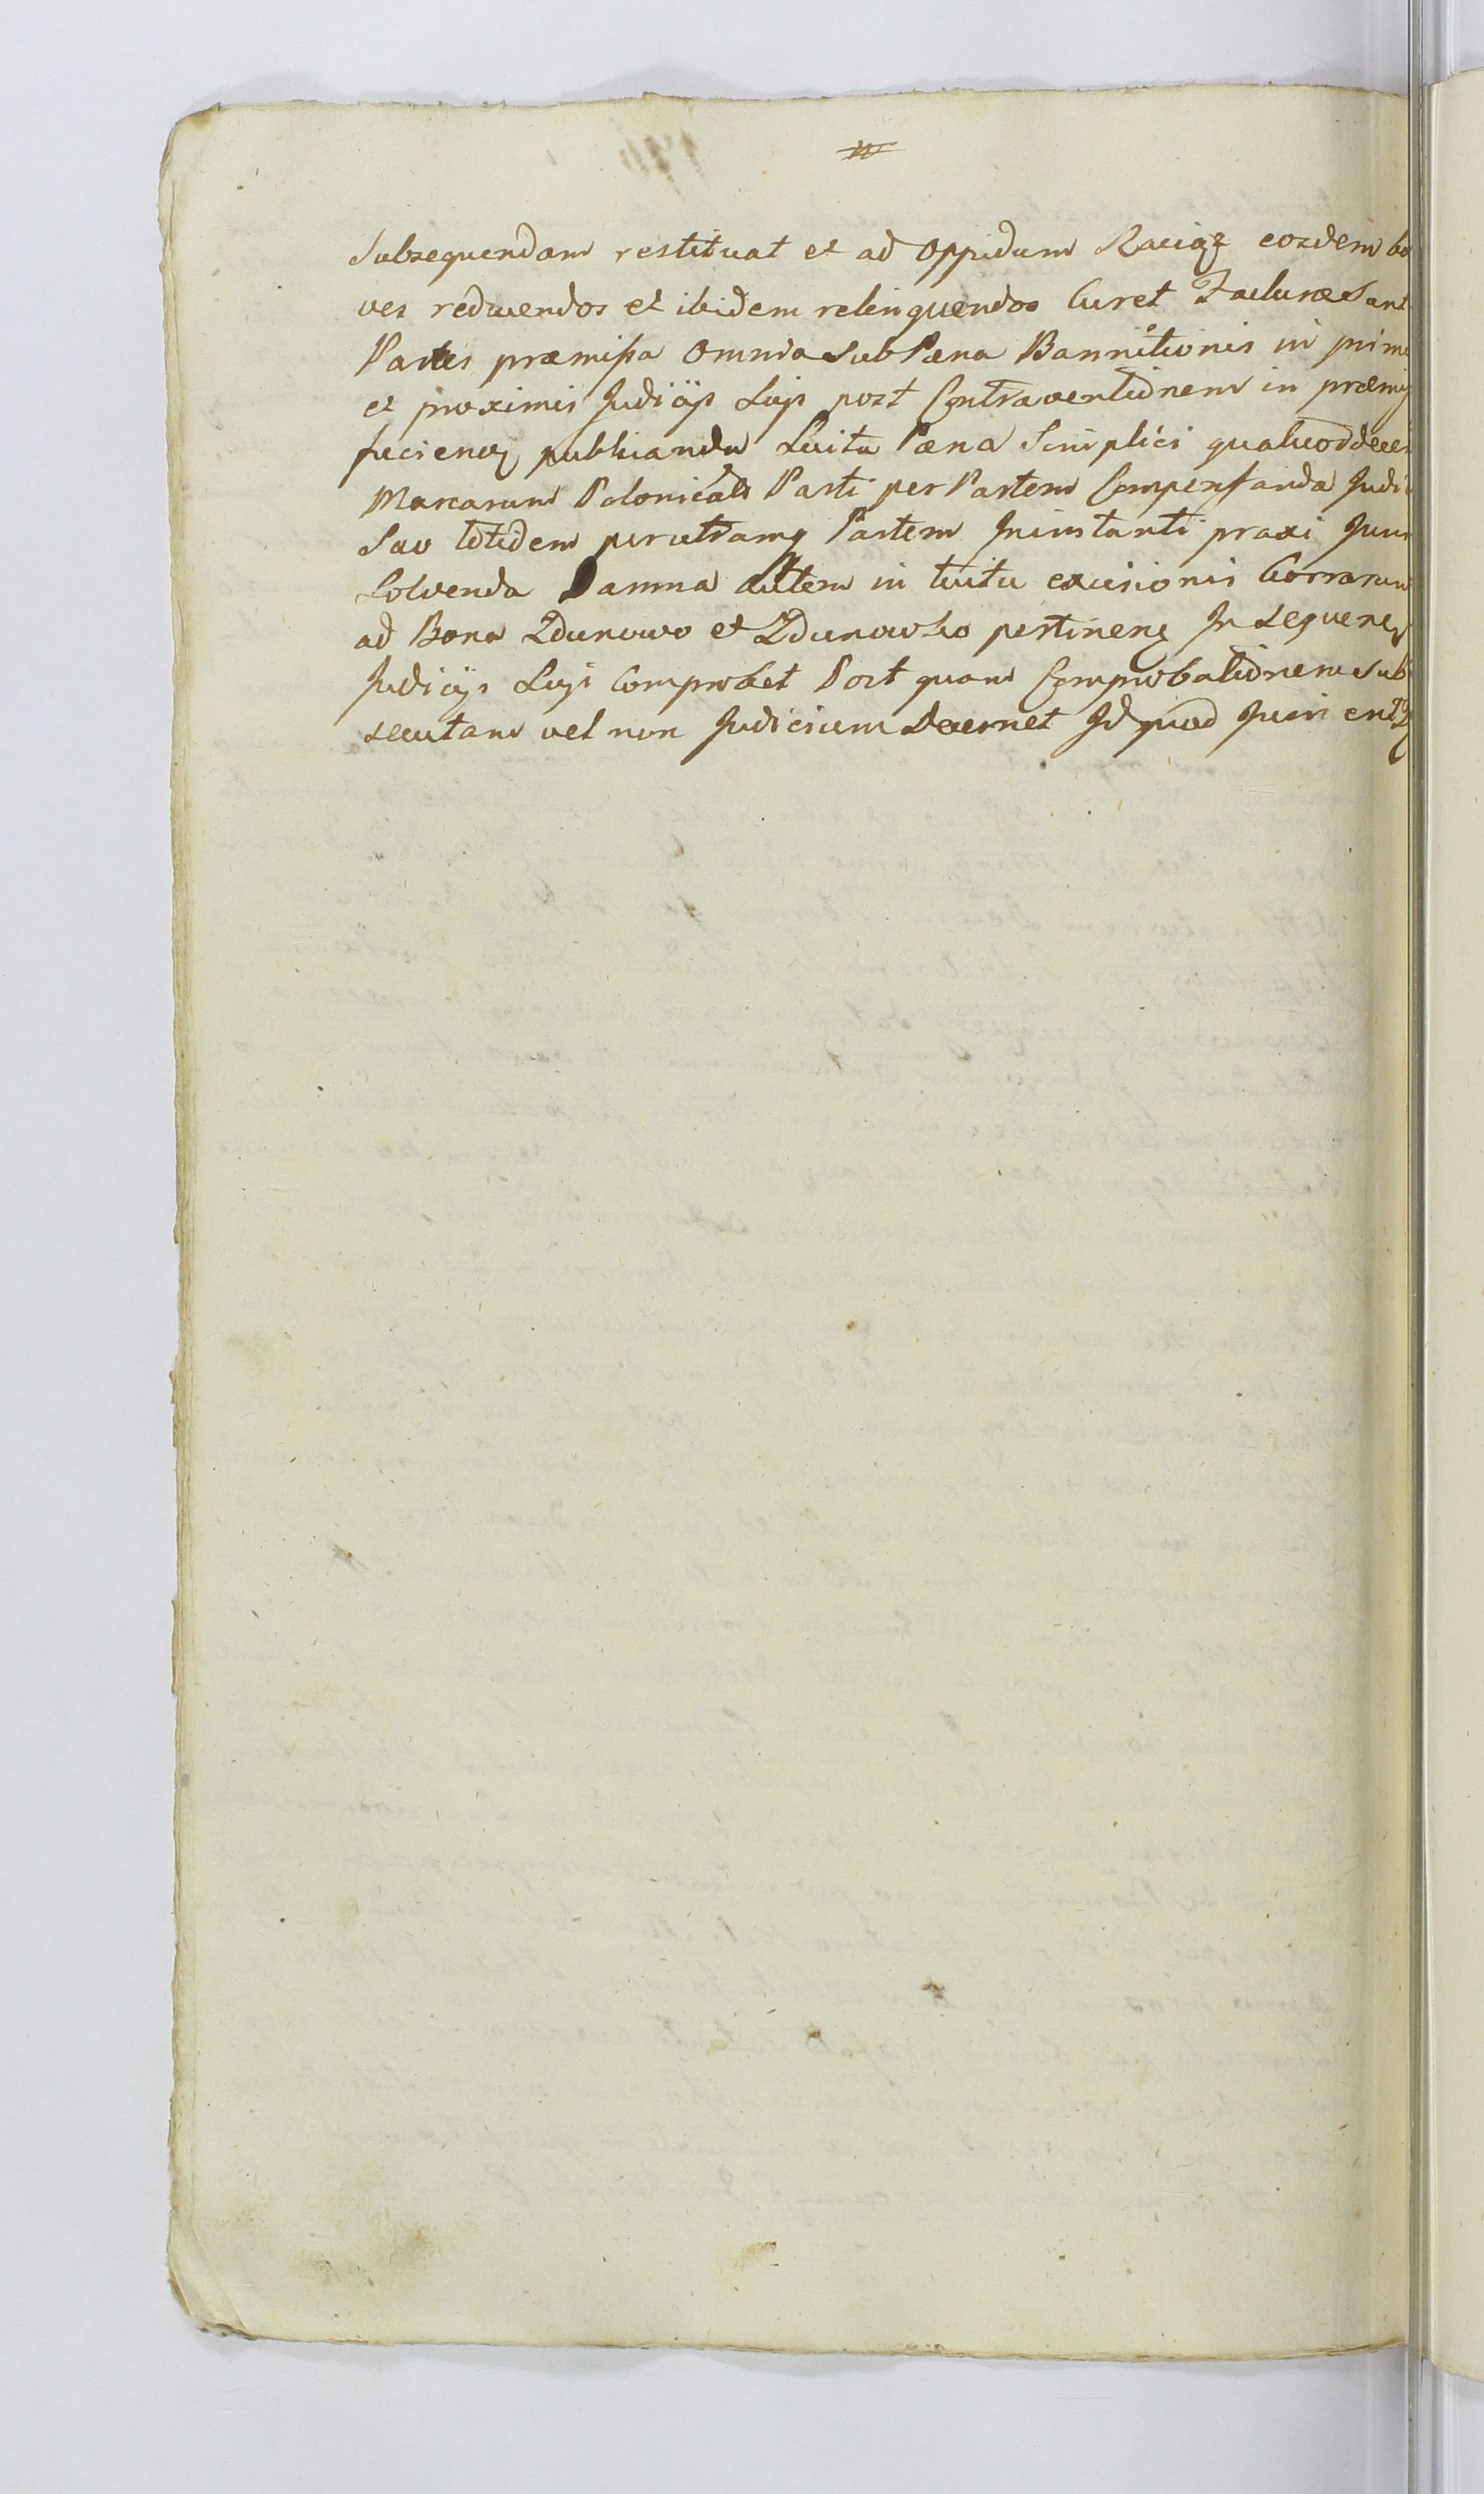 Subsequendam restituat et ad Oppidum Raciąz eosdem bo
ves reducendos et ibidem relinquendos Curet Facturæ sunt
Partes præmissa Omnia sub Pæna Bannitionis in primis
et proximis Judicijs post Contraventionem in præmis
faciend publicanda Luitu Pæna Simplici quatuordecem
Marcarum Polonical Parti per Partem Compensanda Judi
Suo totidem per utramq Partem In instanti praxi Juris
Solvenda Damna autem in tuitu excisionis Gorrarum
ad Bona Zdunowo et Zdunowsko pertinen In sequen
Judicijs Comprobet Post quam Comprobationem sub
secutam vel non Judicium Decernet Id quod Juri erit